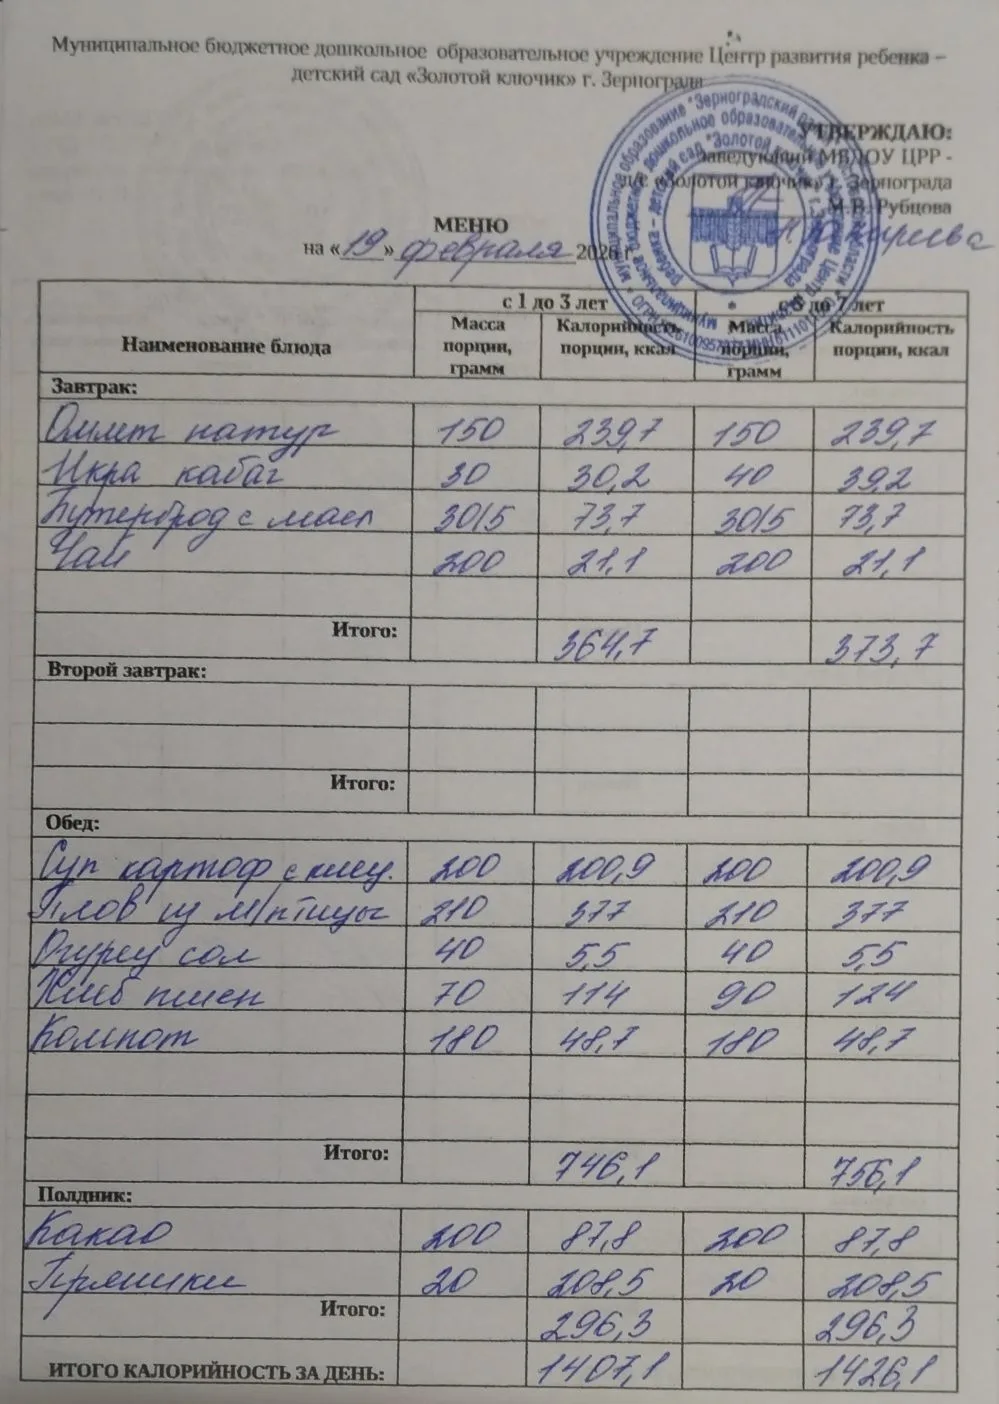 Муниципальное бюджетное дошкольное образовательное учреждение Центр развития ребенка –
детский сад «Золотой ключик» г. Зернограда
УТВЕРЖДАЮ:
Заведующий МБДОУ ЦРР -
д/с «Золотой ключик» г. Зернограда
М.В. Рубцова
МЕНЮ
на «19» февраля 2026 г.
с 1 до 3 лет с 3 до 7 лет
Наименование блюда Масса порции, грамм Калорийность порции, ккал Масса порции, грамм Калорийность порции, ккал
Завтрак:
Омлет натур 150 239,7 150 239,7
Икра кабаг 30 30,2 40 39,2
Бутерброд с масл 30/5 73,7 30/5 73,7
Чай 200 21,1 200 21,1
Итого: 364,7 373,7
Второй завтрак:
Итого:
Обед:
Суп картоф с клец. 200 200,9 200 200,9
Плов из м/птицы 210 377 210 377
Огурец сол 40 5,5 40 5,5
Хлеб пшен 70 114 90 124
Компот 180 48,7 180 48,7
Итого: 746,1 756,1
Полдник:
Какао 200 87,8 200 87,8
Пряники 20 208,5 20 208,5
Итого: 296,3 296,3
ИТОГО КАЛОРИЙНОСТЬ ЗА ДЕНЬ: 1407,1 1426,1